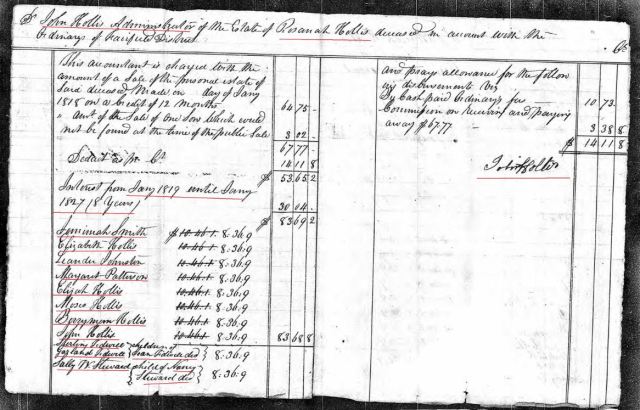 Dr John Hollis Administrator of the Estate of Rosanah Hollis deceased in account with the
Ordinary of Fairfield District Cr
This accountant is charged with the
amount of a Sale of the personal estate of
Said deceased Made on day of Jany
1818 on a Credit of 12 Months 64 75
" Amt of the Sale of one Sow which could
not be found at the time of the public Sale 3 02
67 77
Deduct as pr Cr 14 11 8
$ 53 65 2
Interest from Jany 1819 until Jany
1827 (8 Years) 30 04
$ 83 69 2
Jemimah Smith $ 10.46.1 8.36.9
Elizabeth Hollis 10.46.1 8.36.9
Leander Johnston 10.46.1 8.36.9
Margaret Patterson 10.46.1 8.36.9
Elijah Hollis 10.46.1 8.36.9
Moses Hollis 10.46.1 8.36.9
Berrymem Hollis 10.46.1 8.36.9
John Hollis 10.46.1 8.36.9 83 68 8
Tidwell children of
Garland Tidwell ded 8.36.9
Sally W Steward child of Nancy
Steward ded 8.36.9
and prays allowance for the follow
ing disbursements Viz
By Cash paid Ordinarys fees 10 73
Commission on receiving and paying
away $67.77 3 38 8
$ 14 11 8
John Hollis